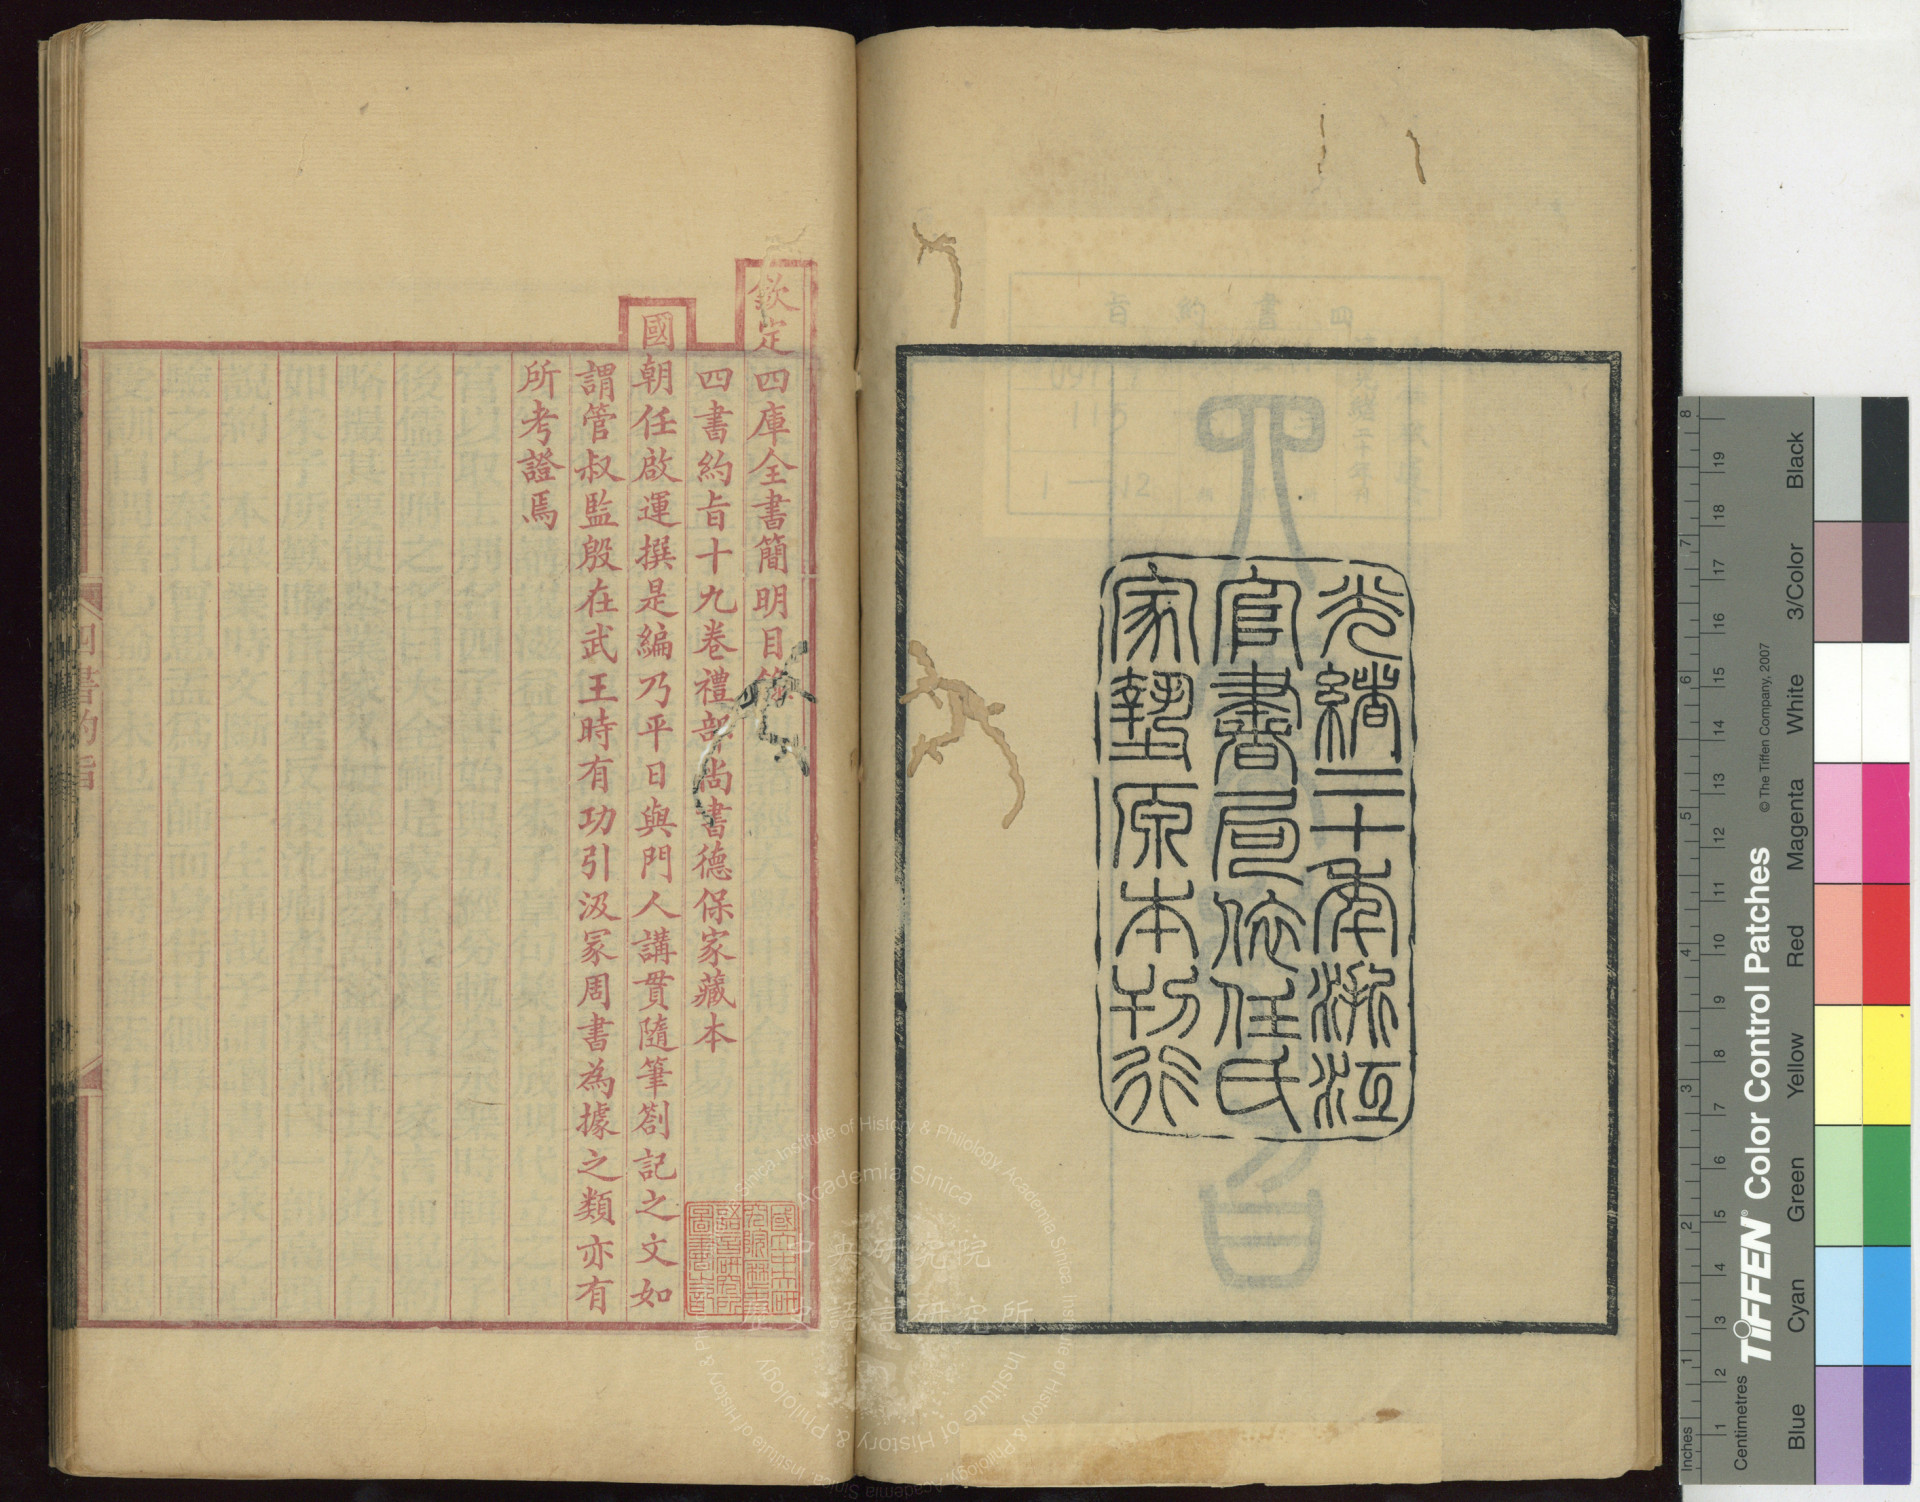 光緒二十年浙江
官書局依任氏
家塾原本刊行
欽定四庫全書簡明目錄
四書約旨十九卷禮部尚書德保家藏本
國朝任啟運撰是編乃平日與門人講貫隨筆劄記之文如
謂管叔監殷在武王時有功引汲冢周書為據之類亦有
所考證焉
四書約旨
中央研究院
歷史語言研究所
Academia Sinica
Institute of History & Philology, Academia Sinica
Inches
Centimetres
TIFFEN® Color Control Patches
© The Tiffen Company, 2007
Blue Cyan Green Yellow Red Magenta White 3/Color Black
1 2 3 4 5 6 7 8
1 2 3 4 5 6 7 8 9 10 11 12 13 14 15 16 17 18 19